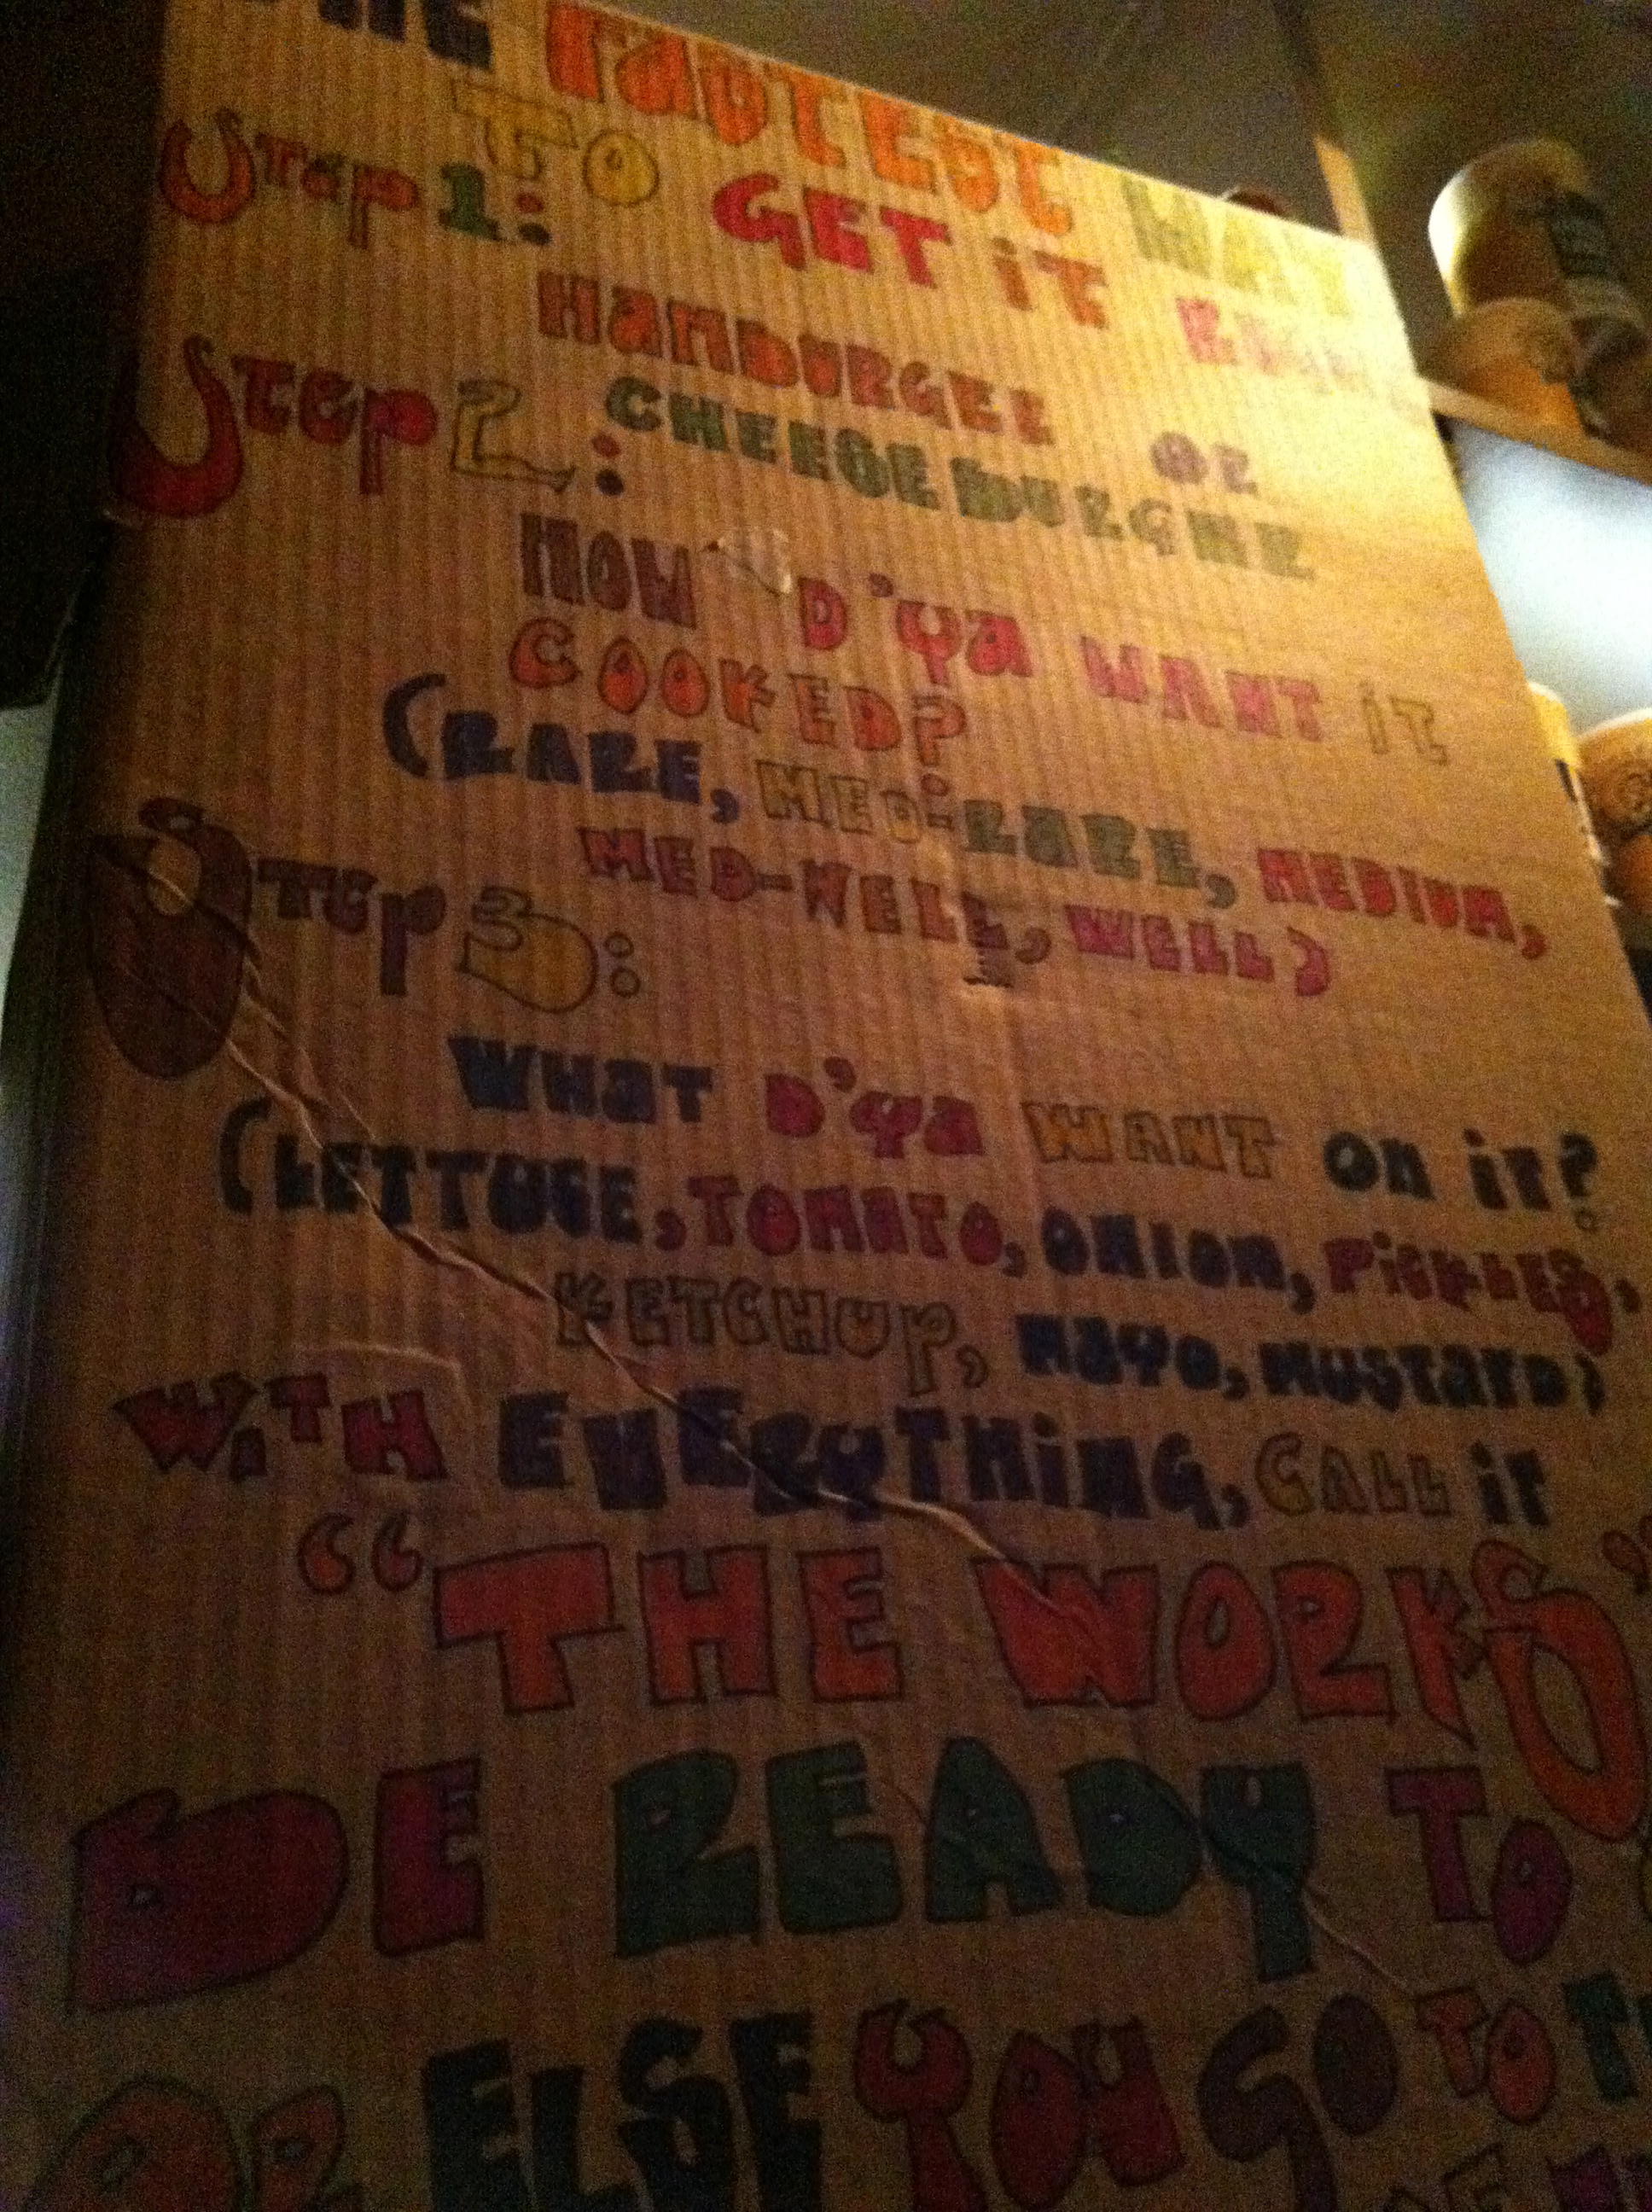 THE FASTEST WAY
TO GET IT
Step 1:
HaMBURGER OR
CHEESEBURGER
Step 2:
HOW D'Ya WANT iT
COOKED?
(RARE, MED-RARE, MEDIUM,
MED-WELL, WELL)
Step 3:
WHaT D'Ya WANT ON iT?
(LETTUCE, TOMATO, ONION, PiCKLES,
KETCHUP, MAYO, MUSTARD)
WiTH EVERYTHiNG, CALL iT
"THE WORKS"
BE READY TO
OR ELSE YOU GO TO